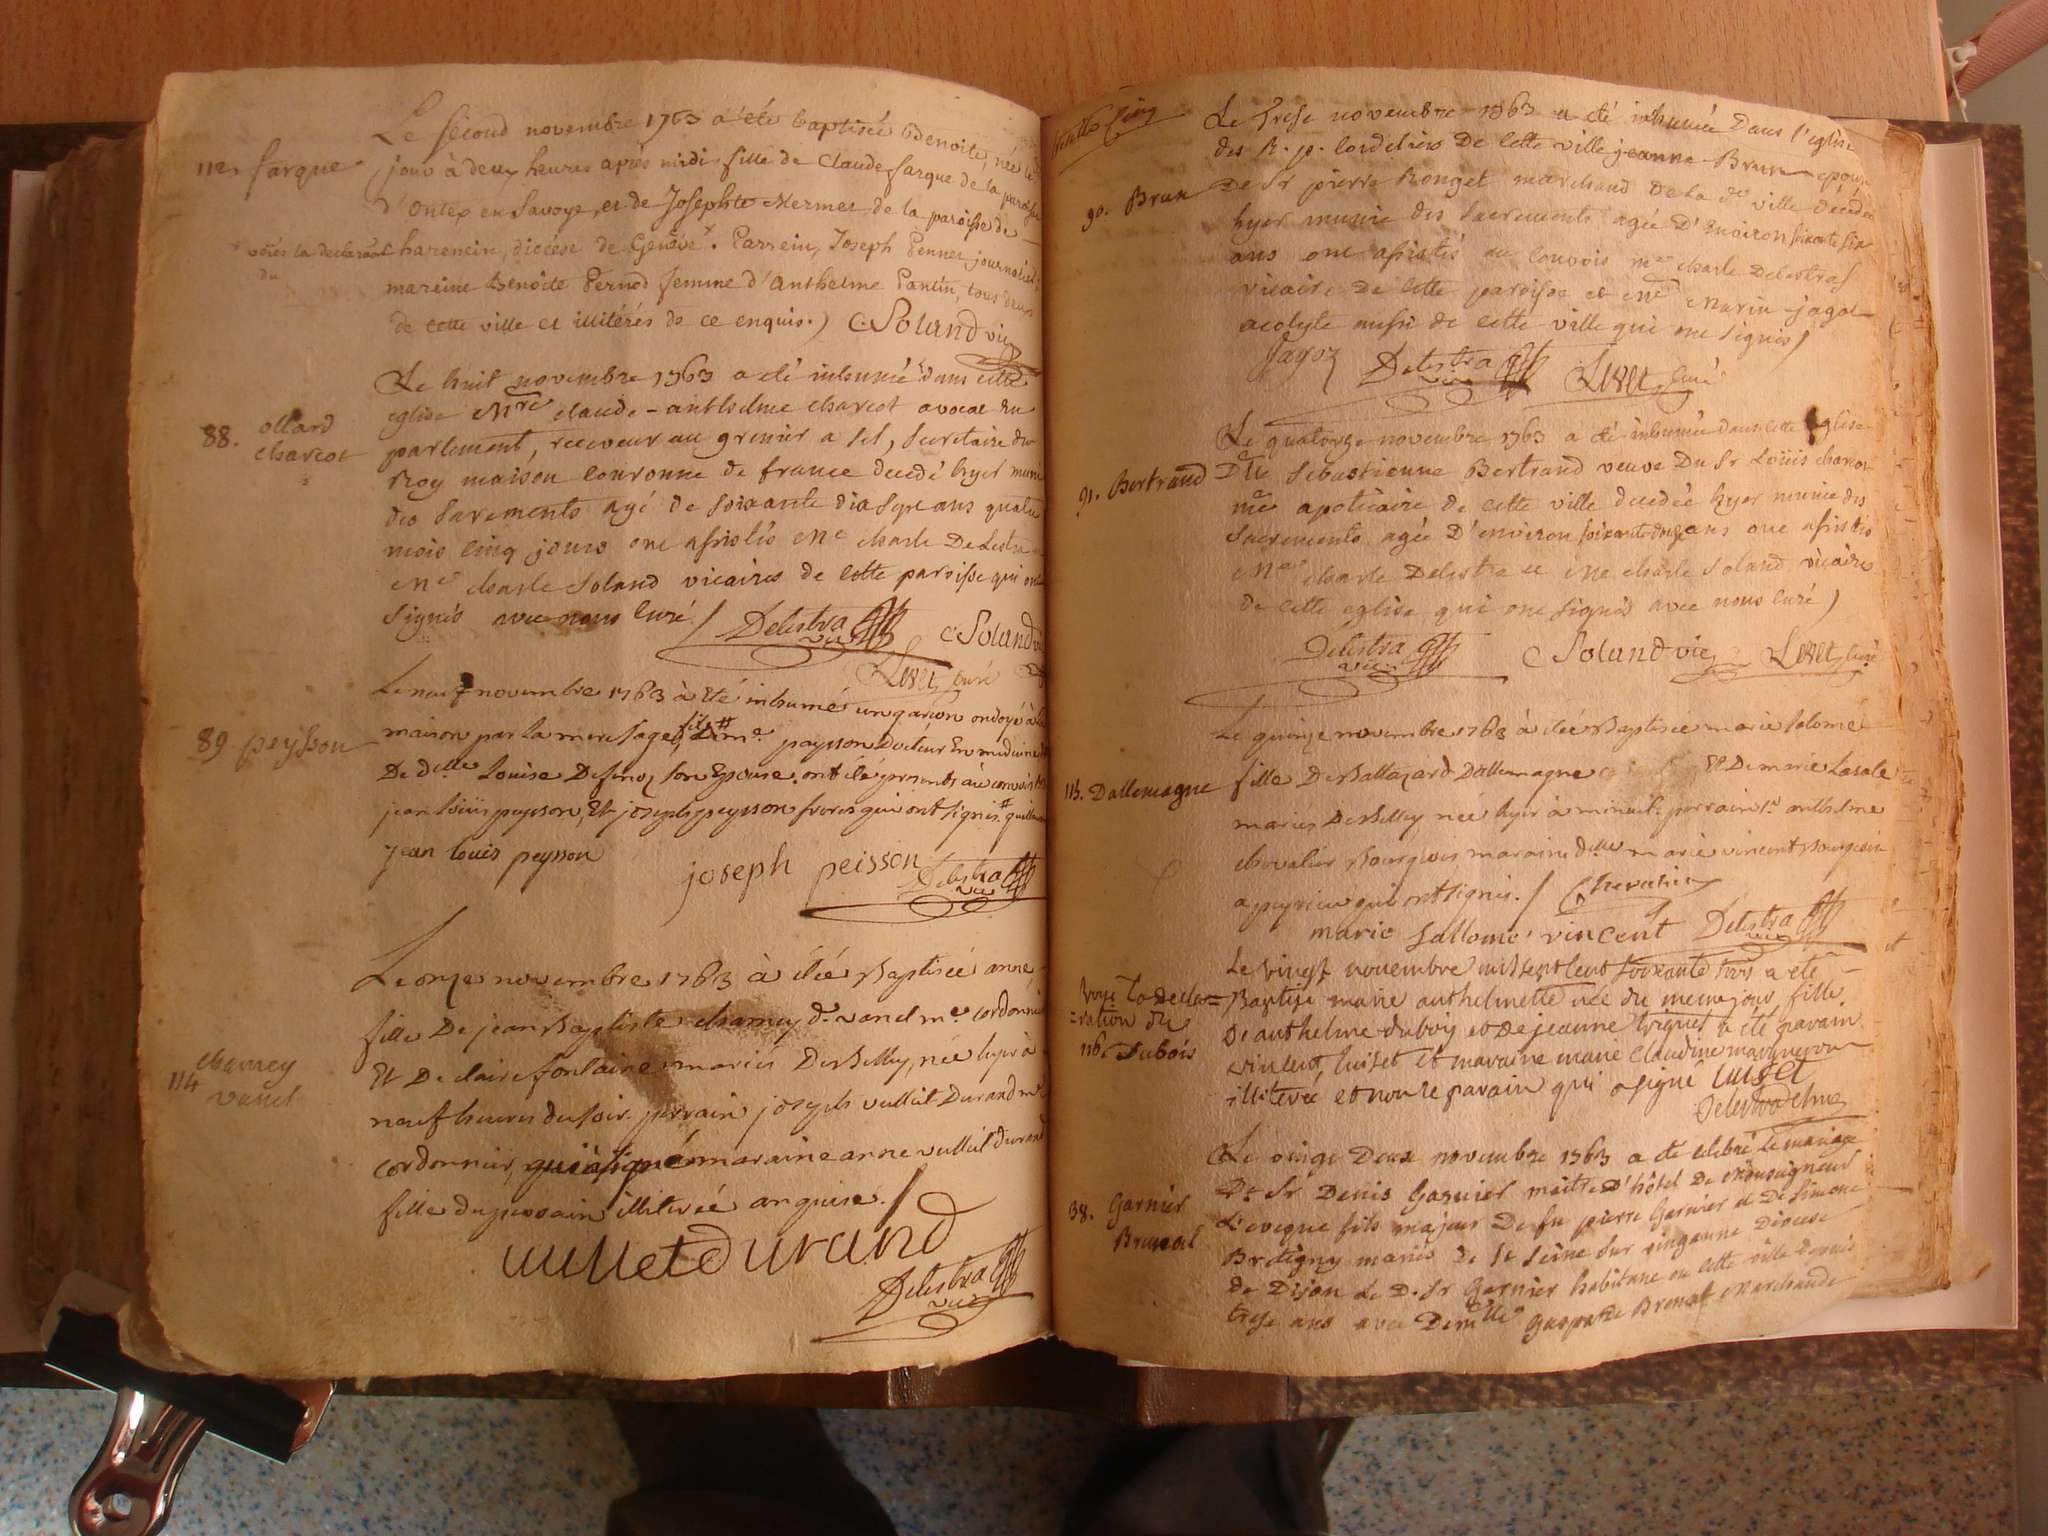 112. farque
Le second novembre 1763 a été baptisée Benoite, née le
jour à deux heures après midi, fille de Claude farque de la paroisse
d'Ontex en Savoye, et de Josephte Mermet de la paroisse de
voiés la declaraõn du
harencin, diocèse de Genève x. Parrein, Joseph Pennet journalier
mareine Benoite Pernod femme d'Anthelme Pantin, tous deux
de cette ville et illitérés de ce enquis.) C. Soland vic
88. ollard charcot
Le huit novembre 1763 a été inhumé dans cette
eglise Mre claude-anthelme charcot avocat en
parlement, receveur au grenier a sel, secretaire du
Roy maison couronne de france decedé hyer muni
des sacrements agé de soixante dix sept ans quatre
mois cinq jours ont assistés Me charle Delestra
Me charle Soland vicaires de cette paroisse qui ont
signés avec nous curé / Delestra vic C. Soland vic
curé
89 peysson
Le neuf novembre 1763 à été inhumé un garçon ondoyé à la
maison par la mere sage, fils # me peysson docteur En medecine
De delle Louise Defenoz son Epouse. ont été presents au convoi
jean Louis peysson, Et joseph peysson freres qui ont signés #
jean louis peysson joseph peisson Delestra vic
114 charney vanel
Le onze novembre 1763 à étée Baptisée anne
fille De jean Baptiste charney d. vanel me cordonnier
Et De claire fontaine mariés De Belley, née hyer à
neuf heures du soir. parrain joseph vulliet Durand me
cordonnier, qui à signé maraine anne vulliet durand
fille du parrain illiterée enquise. /
vullietdurand
Delestra vic
90. Brun
Le Trese novembre 1763 a été inhumée Dans l'eglise
des R. p. Cordeliers De cette ville jeanne Brun epouse
De Sr pierre Ronget marchand De la de ville décédée
hyer munie des sacrements agée D'environ soixante six
ans ont assistés au convois Me charle Delestra
vicaire De cette paroisse et Me Marin jagot
acolyte aussi de cette ville qui ont signés /
Jagoz Delestra vic curé
91. Bertrand
Le quatorze novembre 1763 a été inhumée dans cette Eglise
Dlle Sebastienne Bertrand veuve Du Sr Loüis charcot
me apoticaire de cette ville decedée hyer munie des
sacrements agée D'environ soixante douze ans ont assistés
Me charle Delestra et Me charle Soland vicaires
de cette eglise qui ont signés avec nous curé )
Delestra vic C Soland vic curé
115. Dallemagne
Le quinze novembre 1763 à étée Baptisée marie salomé
fille De Baltazard Dallemagne Et De marie Lasale
mariés De Belley née hyer à minuit. parrain Sr anthelme
chevalier Bourgeois maraine delle marie vincent Bourgeoise
a peyrieu qui ont signés. / Chevalier
marie sallomé vincent Delestra vic
voye la decla=
=ration du
116. Dubois
Le vingt novembre mil sept cent soixante trois a été
Baptisé marie anthelmette née du meme jour fille
De anthelme duboy et de jeanne trignet a été parain
vincent, Luiset et maraine marie claudine
illiterée et non le parain qui a signé luiset
38. Garnier Brunet
Le vingt Deux novembre 1763 a été celebré Le mariage
De Sr Denis Garnier maitre D'hôtel De Monseigneur
L'eveque fils majeur De fu pierre Garnier et De Simone
Bretigny mariés de St Seine sur vingeanne Diocese
de Dijon Le D. Sr Garnier habitant en cette ville depuis
trese ans avec Demlle Gasparde Brunet Marchande